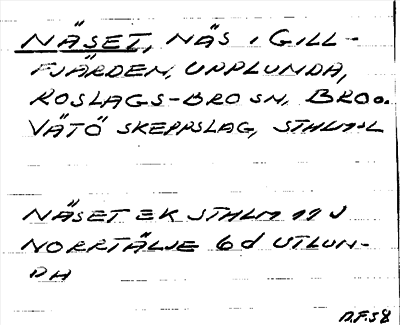 NÄSET, NÄS I GILL-
FJÄRDEN, UPPLUNDA,
ROSLAGS-BRO SN, BRO O.
VÄTÖ SKEPPSLAG, STHLMSL
NÄSET EK STHLM 11 J
NORRTÄLJE 6d UTLUN-
DA
D.F.58